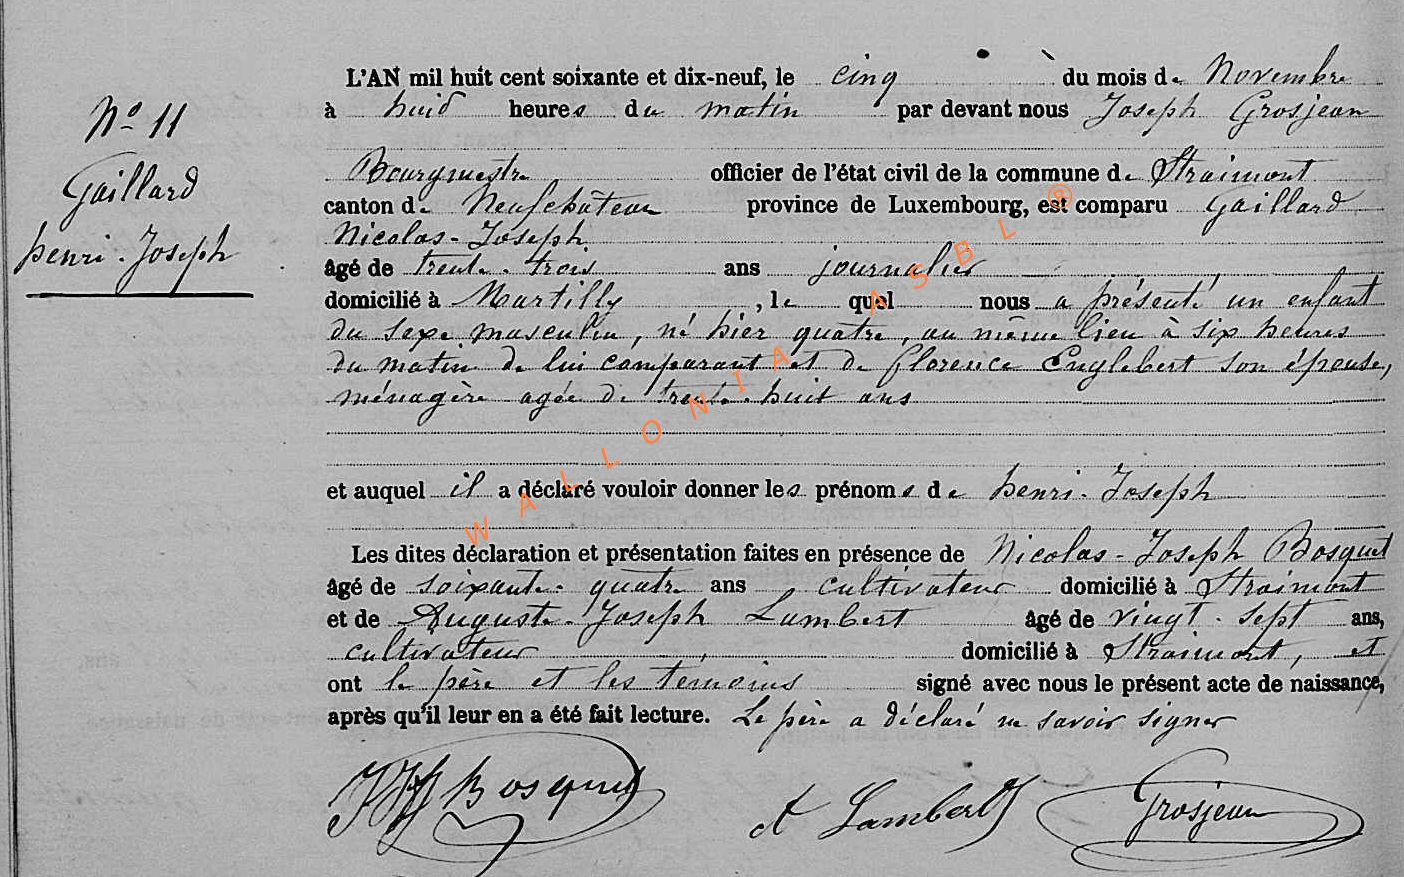 N° 11
Gaillard
henri-Joseph
L'AN mil huit cent soixante et dix-neuf, le cinq du mois de Novembre
à huid heures du matin par devant nous Joseph Grosjean
Bourgmestre officier de l'état civil de la commune de Straimont
canton de Neufchâteau province de Luxembourg, est comparu Gaillard
Nicolas-Joseph
âgé de trente-trois ans journalier
domicilié à Martilly, lequel nous a présenté un enfant
du sexe masculin, né hier quatre, au même lieu à six heures
du matin de lui comparant et de florence Englebert son épouse,
ménagère agée de trente-huit ans
et auquel il a déclaré vouloir donner les prénoms de henri-Joseph
Les dites déclaration et présentation faites en présence de Nicolas-Joseph Bosquet
âgé de soixante-quatre ans cultivateur domicilié à Straimont
et de Auguste-Joseph Lambert âgé de vingt-sept ans,
cultivateur, domicilié à Straimont, et
ont le père et les témoins signé avec nous le présent acte de naissance,
après qu'il leur en a été fait lecture. Le père a déclaré ne savoir signer
Bosquet
A Lambert
Grosjean
WALLONIA ASBL ®